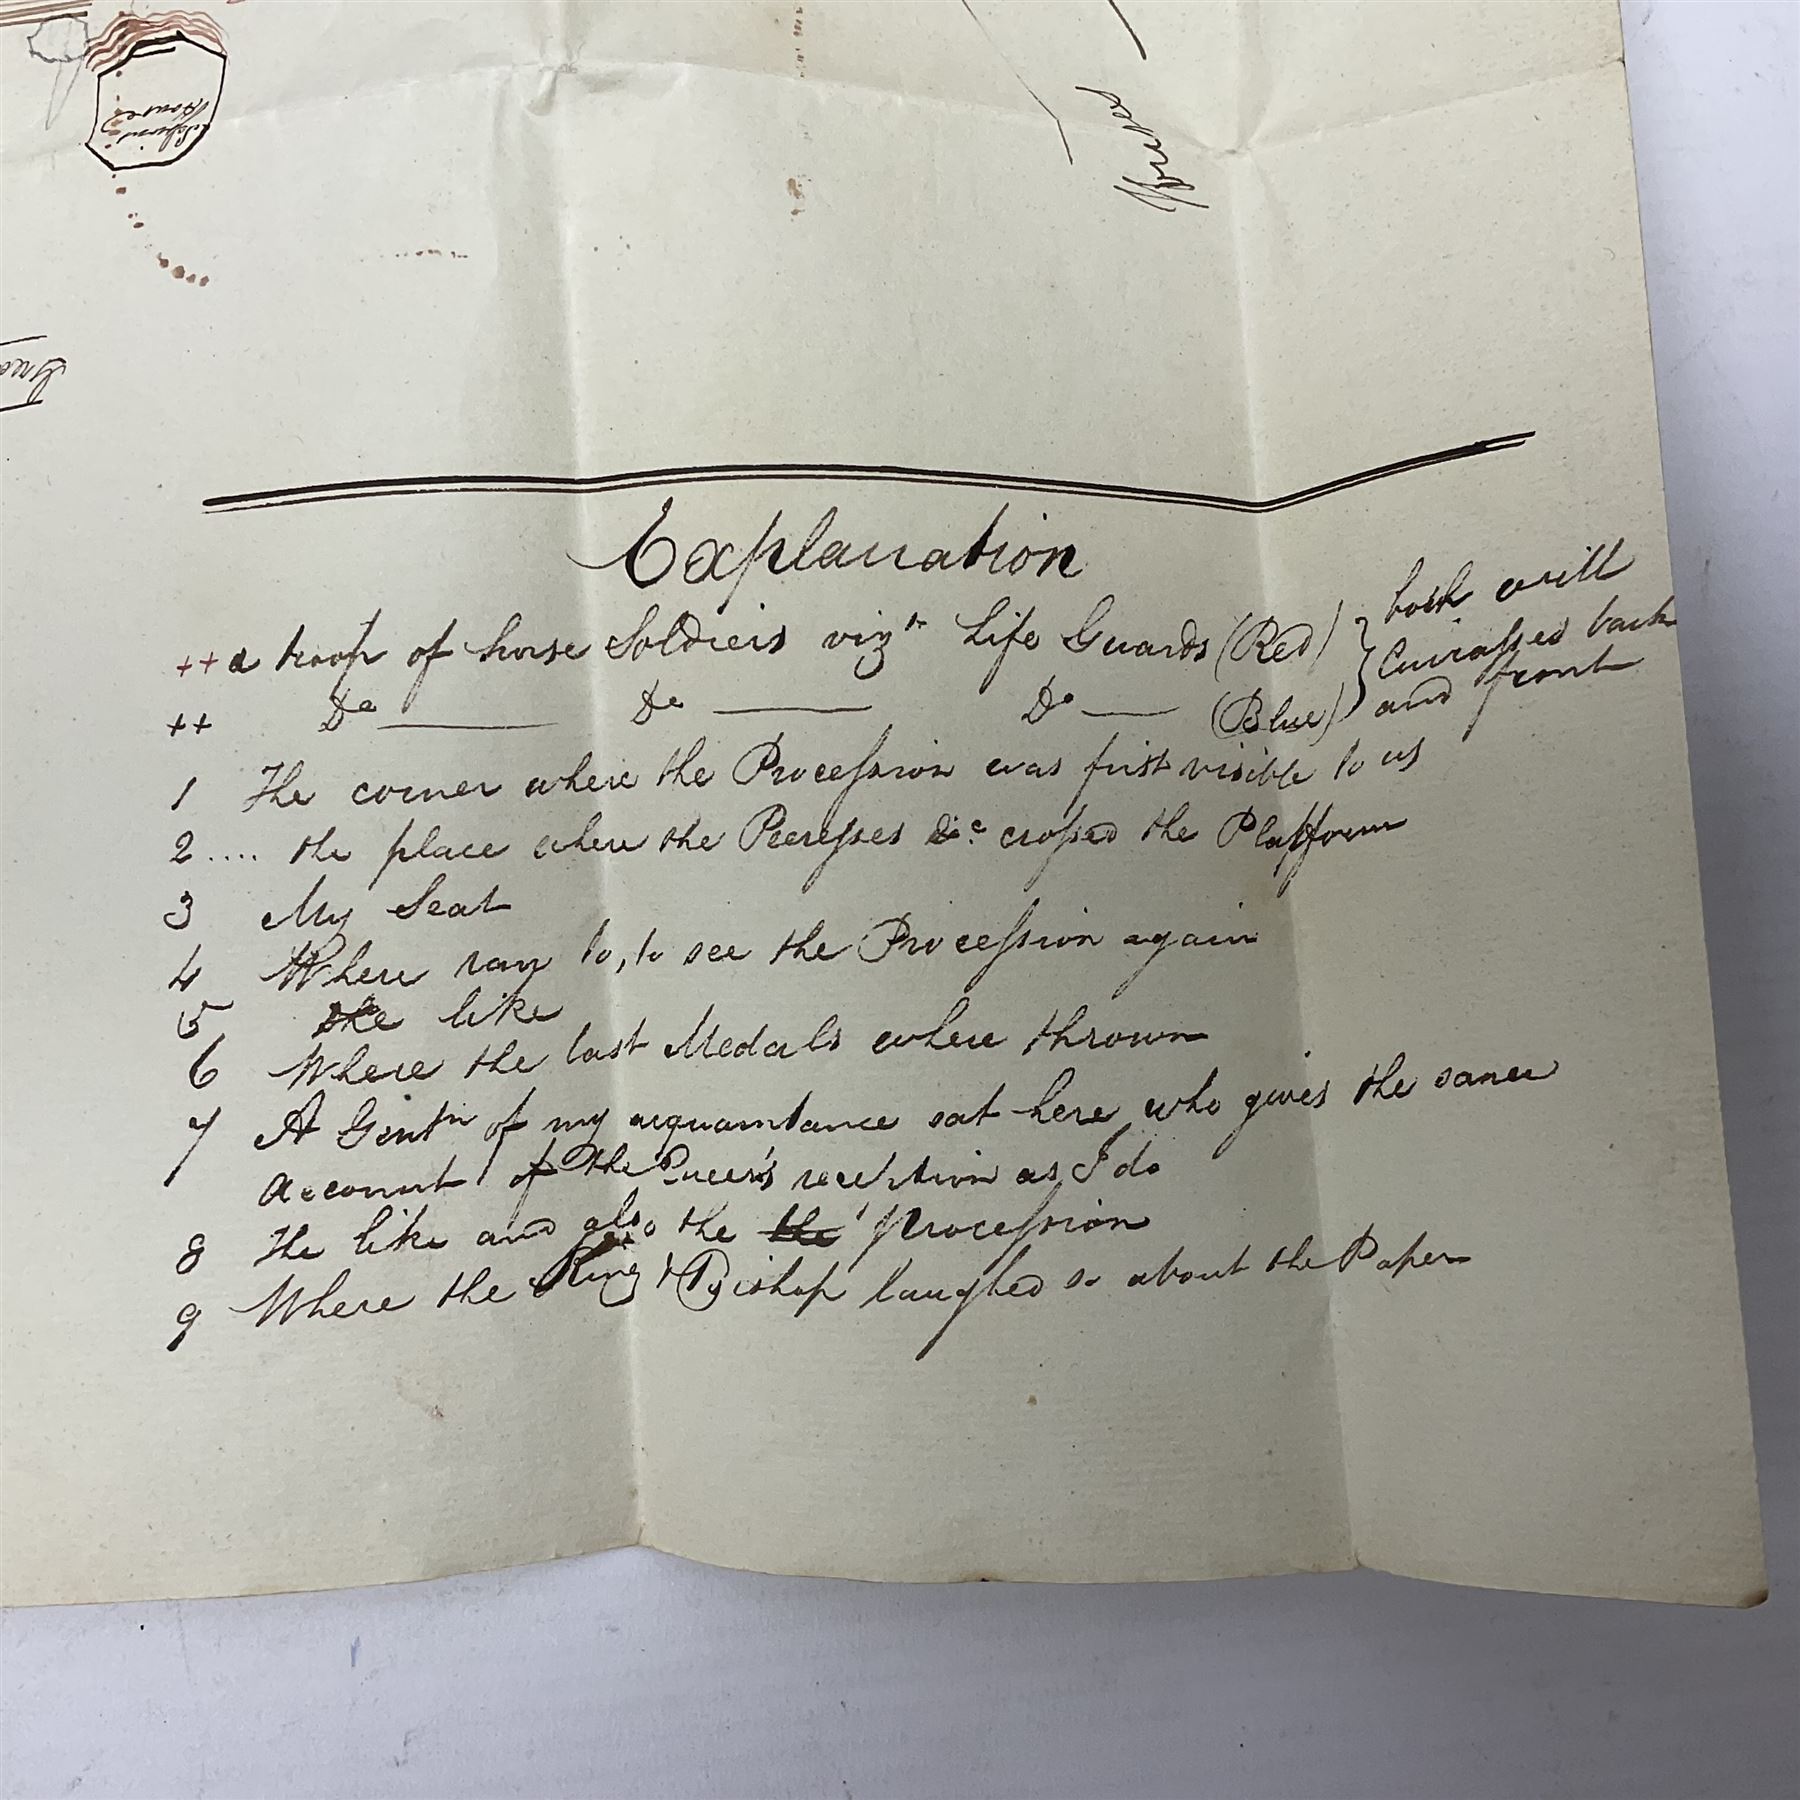 House
Explanation
++ a troop of horse Soldiers vizt Life Guards (Red) } both will
++ Do ——— Do ——— Do —— (Blue) } Cuirassed back
and front
1 The corner where the Procession was first visible to us
2 .... the place where the Peeresses &c crossed the Platform
3 My Seat
4 Where ran to, to see the Procession again
5 the like
6 Where the last Medals where thrown
7 A Gentn of my acquaintance sat here who gives the same
account of the Queen's reception as I do
8 The like and also the the procession
9 Where the King & Bishop laughed so about the Paper